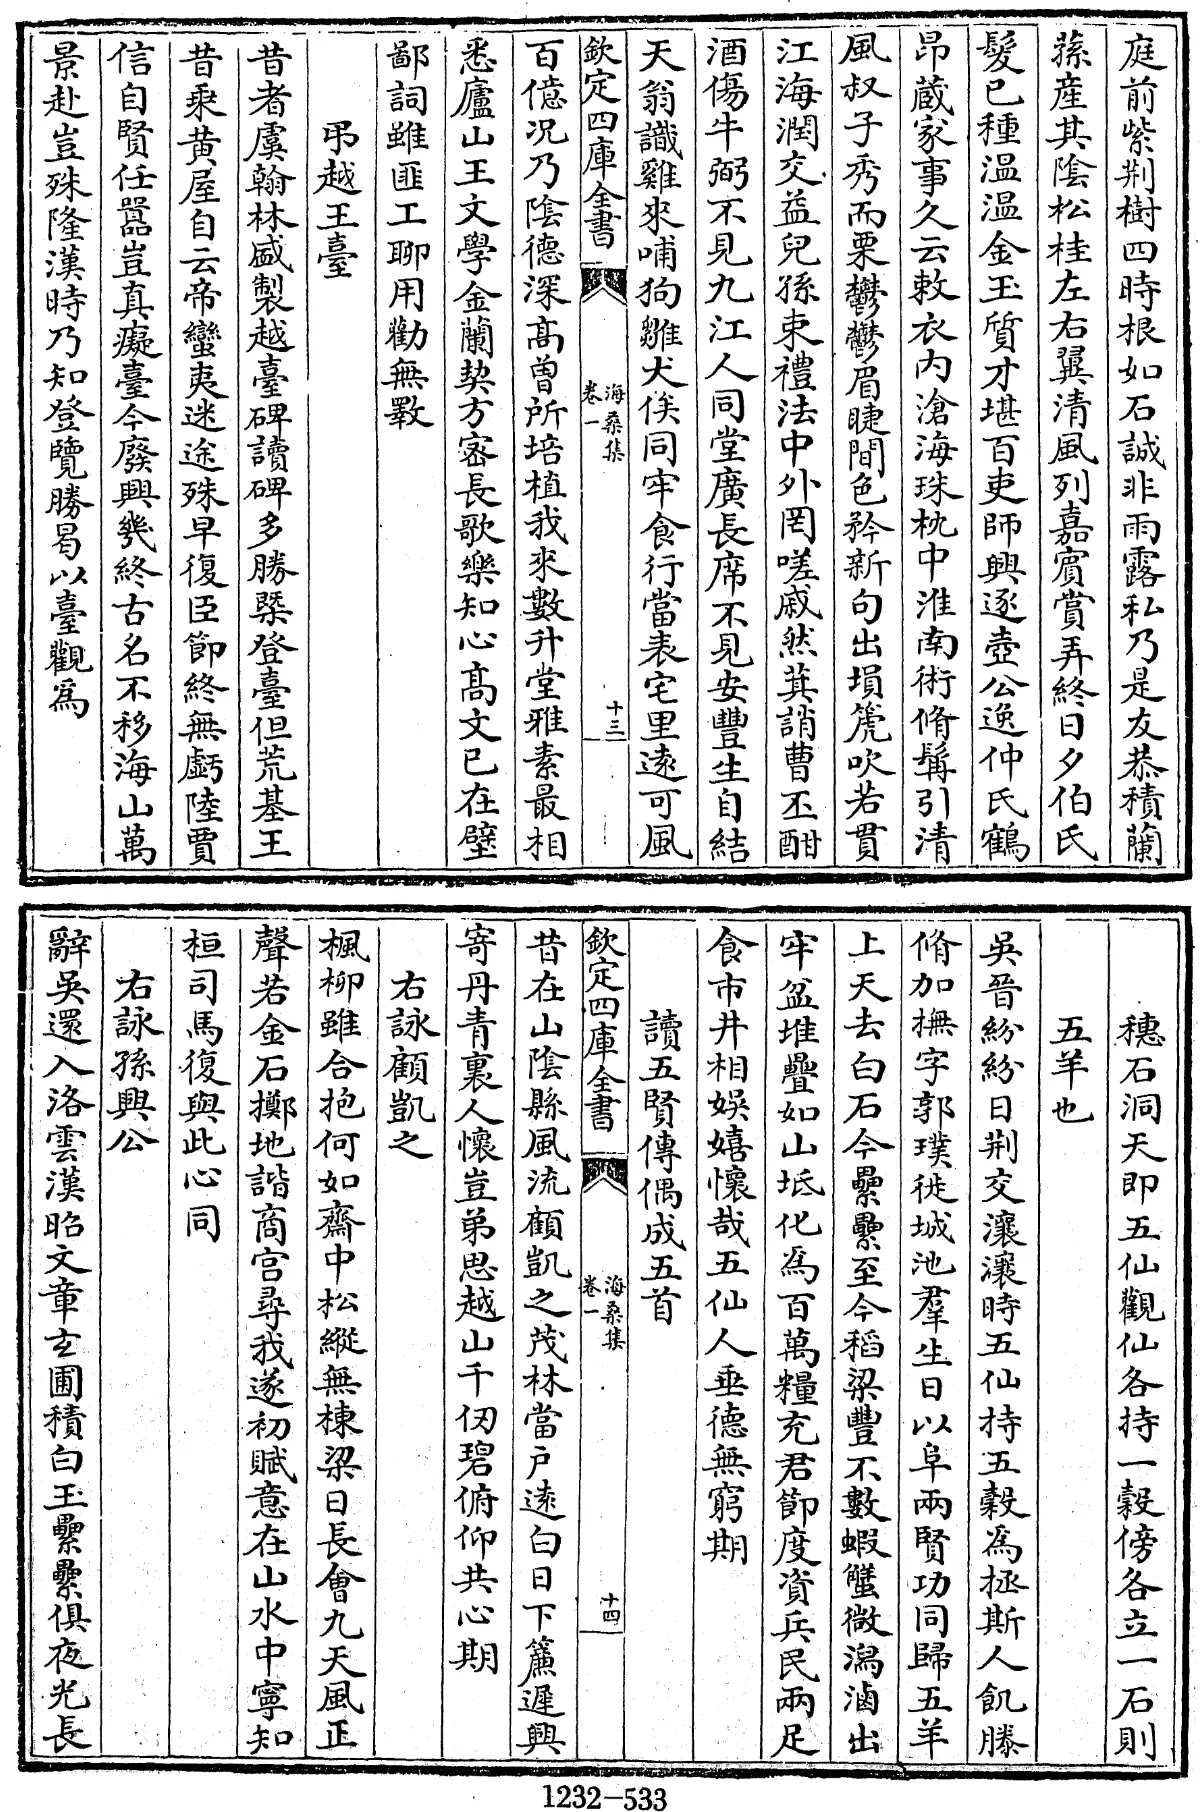 庭前紫荆樹四時根如石誠非雨露私乃是友恭積蘭
蓀産其陰松桂左右翼清風列嘉賓賞弄終日夕伯氏
髮已種温温金玉質才堪百吏師興逐壺公逸仲氏鶴
昂蔵家事久云敕衣内滄海珠枕中淮南術脩髯引清
風叔子秀而栗鬱鬱眉睫間色矜新句出塤篪吹若貫
江海潤交益兒孫束禮法中外罔嗟戚然萁誚曹丕酣
酒傷牛弼不見九江人同堂廣長席不見安豐生自結
天翁識雞來哺狗雛犬俟同牢食行當表宅里逺可風
欽定四庫全書
海桑集
卷一
十三
百億况乃陰德深髙曽所培植我來數升堂雅素最相
悉廬山王文學金蘭契方宻長歌樂知心髙文已在壁
鄙詞雖匪工聊用勸無斁
弔越王臺
昔者虞翰林盛製越臺碑讀碑多勝槩登臺但荒基王
昔乘黄屋自云帝蠻夷迷途殊早復臣節終無虧陸賈
信自賢任囂豈真癡臺今廢興幾終古名不移海山萬
景赴豈殊隆漢時乃知登覽勝曷以臺觀爲
穗石洞天即五仙觀仙各持一穀傍各立一石則
五羊也
吳晉紛紛日荆交瀼瀼時五仙持五穀爲拯斯人飢滕
脩加撫字郭璞徙城池羣生日以阜兩賢功同歸五羊
上天去白石今纍纍至今稻粱豐不數蝦蠏微潟滷出
牢盆堆疊如山坻化爲百萬糧充君節度資兵民兩足
食市井相娱嬉懷哉五仙人垂德無窮期
讀五賢傳偶成五首
欽定四庫全書
海桑集
卷一
十四
昔在山陰縣風流顧凱之茂林當户逺白日下簾遲興
寄丹青裏人懷豈弟思越山千仞碧俯仰共心期
右詠顧凱之
楓柳雖合抱何如齋中松縱無棟梁日長會九天風正
聲若金石擲地諧商宫尋我遂初賦意在山水中寧知
桓司馬復與此心同
右詠孫興公
辭吳還入洛雲漢昭文章玄圃積白玉纍纍俱夜光長
1232-533